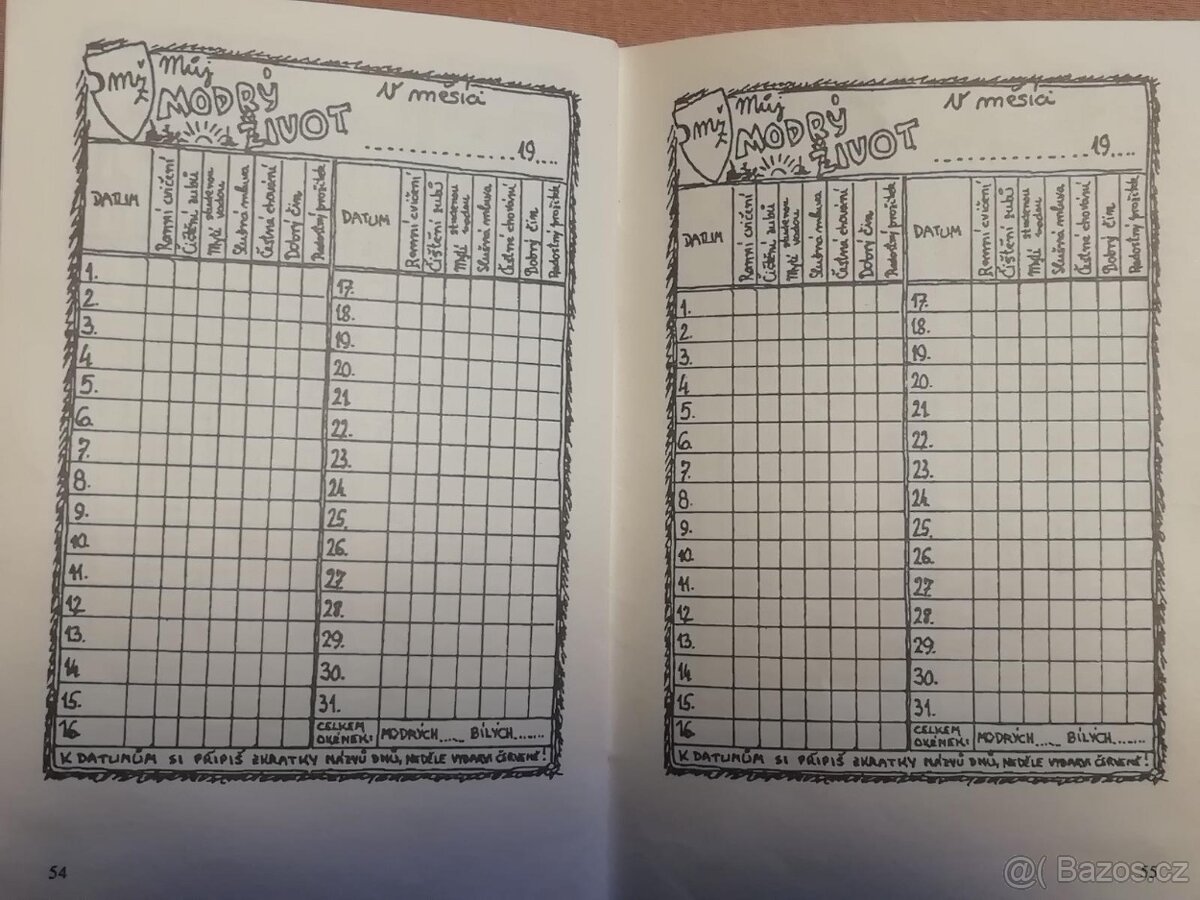 mž
Můj
MODRÝ
ŽIVOT
V měsíci
19....
DATUM
Ranní cvičení
Čištění zubů
Mytí studenou vodou
Slušná mluva
Čestné chování
Dobrý čin
Radostný prožitek
DATUM
Ranní cvičení
Čištění zubů
Mytí studenou vodou
Slušná mluva
Čestné chování
Dobrý čin
Radostný prožitek
1.
2.
3.
4.
5.
6.
7.
8.
9.
10.
11.
12.
13.
14.
15.
16.
17.
18.
19.
20.
21.
22.
23.
24.
25.
26.
27.
28.
29.
30.
31.
CELKEM
OKÉNEK: MODRÝCH..... BÍLÝCH.......
K DATUMŮM SI PŘIPIŠ ZKRATKY NÁZVŮ DNŮ, NEDĚLE VYBARVI ČERVENĚ!
54
mž
Můj
MODRÝ
ŽIVOT
V měsíci
19....
DATUM
Ranní cvičení
Čištění zubů
Mytí studenou vodou
Slušná mluva
Čestné chování
Dobrý čin
Radostný prožitek
DATUM
Ranní cvičení
Čištění zubů
Mytí studenou vodou
Slušná mluva
Čestné chování
Dobrý čin
Radostný prožitek
1.
2.
3.
4.
5.
6.
7.
8.
9.
10.
11.
12.
13.
14.
15.
16.
17.
18.
19.
20.
21.
22.
23.
24.
25.
26.
27.
28.
29.
30.
31.
CELKEM
OKÉNEK: MODRÝCH..... BÍLÝCH.......
K DATUMŮM SI PŘIPIŠ ZKRATKY NÁZVŮ DNŮ, NEDĚLE VYBARVI ČERVENĚ!
55
@( Bazos.cz